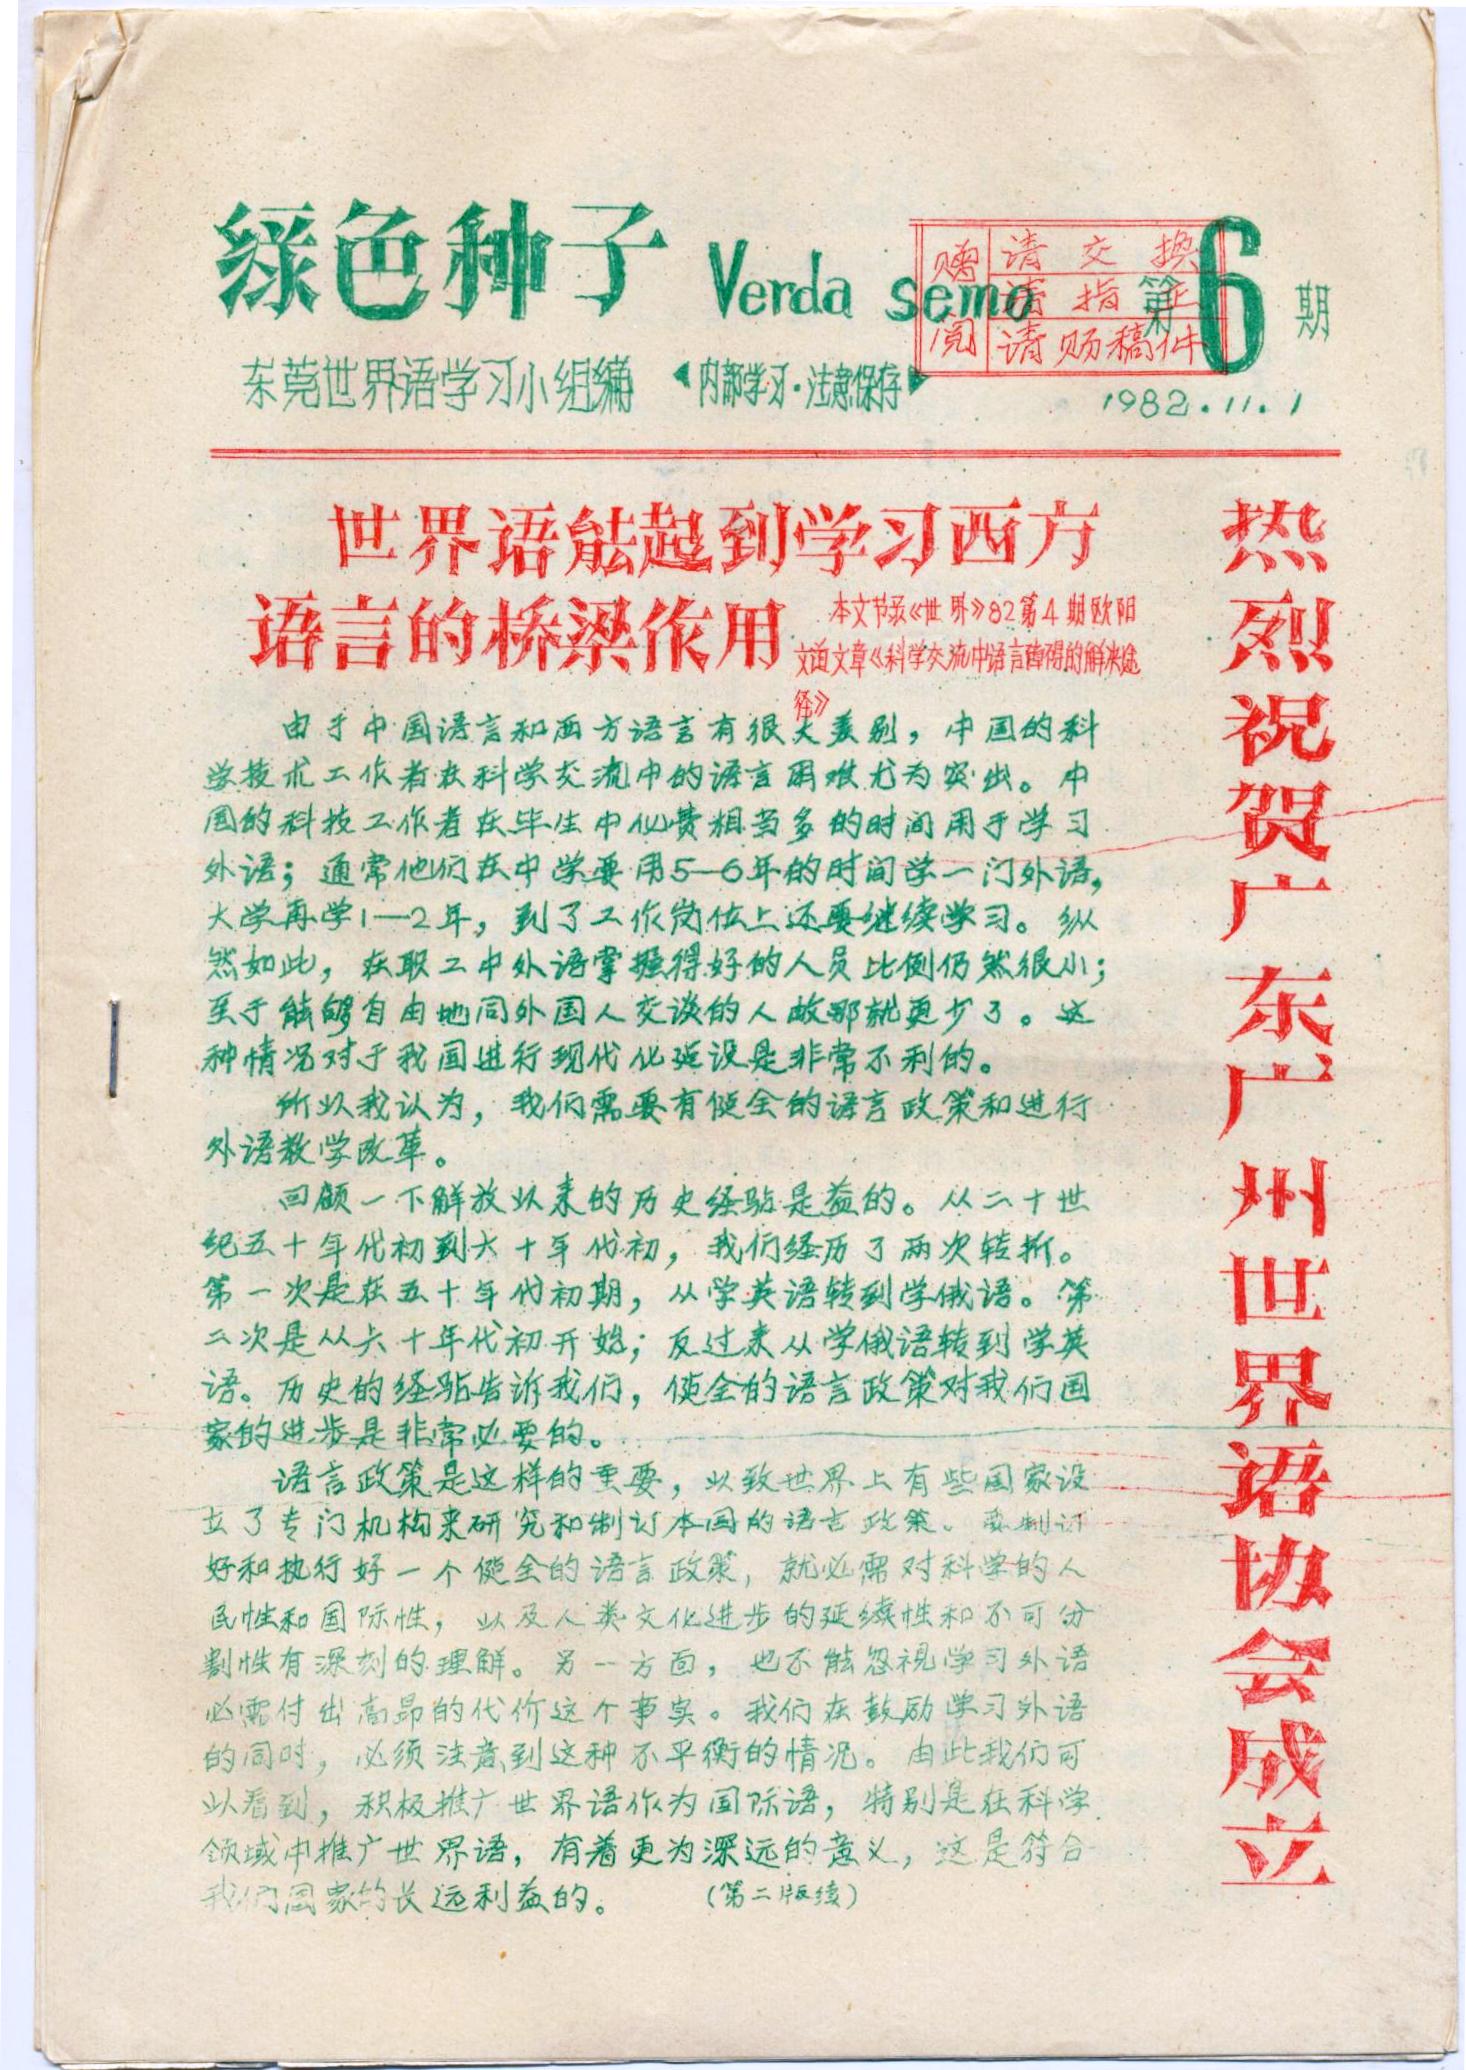 绿色种子 Verda semo 第6期
赠阅
请交换
请指正
请赐稿件
东莞世界语学习小组编
◀内部学习·注意保存▶
1982.11.1
世界语能起到学习西方
语言的桥梁作用
本文节录《世界》82第4期欧阳
文道文章《科学交流中语言障碍的解决途
径》
由于中国语言和西方语言有很大差别，中国的科
学技术工作者在科学交流中的语言困难尤为突出。中
国的科技工作者在毕生中化费相当多的时间用于学习
外语；通常他们在中学要用5—6年的时间学一门外语，
大学再学1—2年，到了工作岗位上还要继续学习。纵
然如此，在职工中外语掌握得好的人员比例仍然很小；
至于能够自由地同外国人交谈的人故那就更少了。这
种情况对于我国进行现代化建设是非常不利的。
所以我认为，我们需要有健全的语言政策和进行
外语教学改革。
回顾一下解放以来的历史经验是益的。从二十世
纪五十年代初到六十年代初，我们经历了两次转折。
第一次是在五十年代初期，从学英语转到学俄语。第
二次是从六十年代初开始；反过来从学俄语转到学英
语。历史的经验告诉我们，健全的语言政策对我们国
家的进步是非常必要的。
语言政策是这样的重要，以致世界上有些国家设
立了专门机构来研究和制订本国的语言政策。要制订
好和执行好一个健全的语言政策，就必需对科学的人
民性和国际性，以及人类文化进步的延续性和不可分
割性有深刻的理解。另一方面，也不能忽视学习外语
必需付出高昂的代价这个事实。我们在鼓励学习外语
的同时，必须注意到这种不平衡的情况。由此我们可
以看到，积极推广世界语作为国际语，特别是在科学
领域中推广世界语，有着更为深远的意义，这是符合
我们国家的长远利益的。（第二版续）
热烈祝贺广东广州世界语协会成立